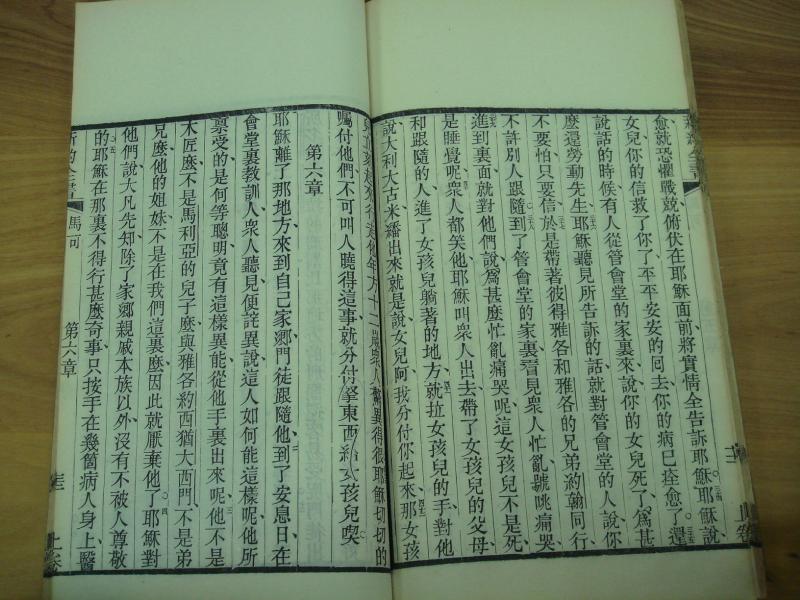 愈就恐懼戰兢俯伏在耶穌面前將實情全告訴耶穌耶穌說
女兒你的信救了你了平平安安的回去你的病已痊愈了還
說話的時候有人從管會堂的家裏來說你的女兒死了爲甚
麽還勞動先生耶穌聽見所告訴的話就對管會堂的人說你
不要怕只要信於是帶著彼得雅各和雅各的兄弟約翰同行
不許別人跟隨到了管會堂的家裏看見衆人忙亂號咷痛哭
進到裏面就對他們說爲甚麽忙亂痛哭呢這女孩兒不是死
是睡覺呢衆人都笑他耶穌叫衆人出去帶了女孩兒的父母
和跟隨的人進了女孩兒躺著的地方就拉女孩兒的手對他
說大利大古米繙出來就是說女兒阿我分付你起來那女孩
年方十二歲衆人驚異得很耶穌切切的
囑付他們不可叫人曉得這事就分付拏東西給女孩兒喫
第六章
耶穌離了那地方來到自己家鄉門徒跟隨他到了安息日在
會堂裏教訓人衆人聽見便詫異說這人如何能這樣呢他所
禀受的是何等聰明竟有這樣異能從他手裏出來呢他不是
木匠麽不是馬利亞的兒子麽與雅各約西猶大西門不是弟
兄麽他的姐妹不是在我們這裏麽因此就厭棄他了耶穌對
他們說大凡先知除了家鄉親戚本族以外沒有不被人尊敬
的耶穌在那裏不得行甚麽奇事只按手在幾箇病人身上醫
馬可
第六章
上卷